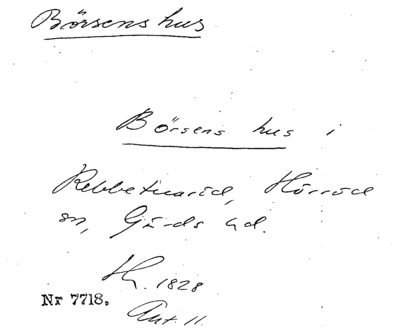 Börsens hus
Börsens hus i
Rebbetuaröd, Hörröd
sn, Gärds hd.
Hfl. 1828
Nr 7718.
Ant. 11.